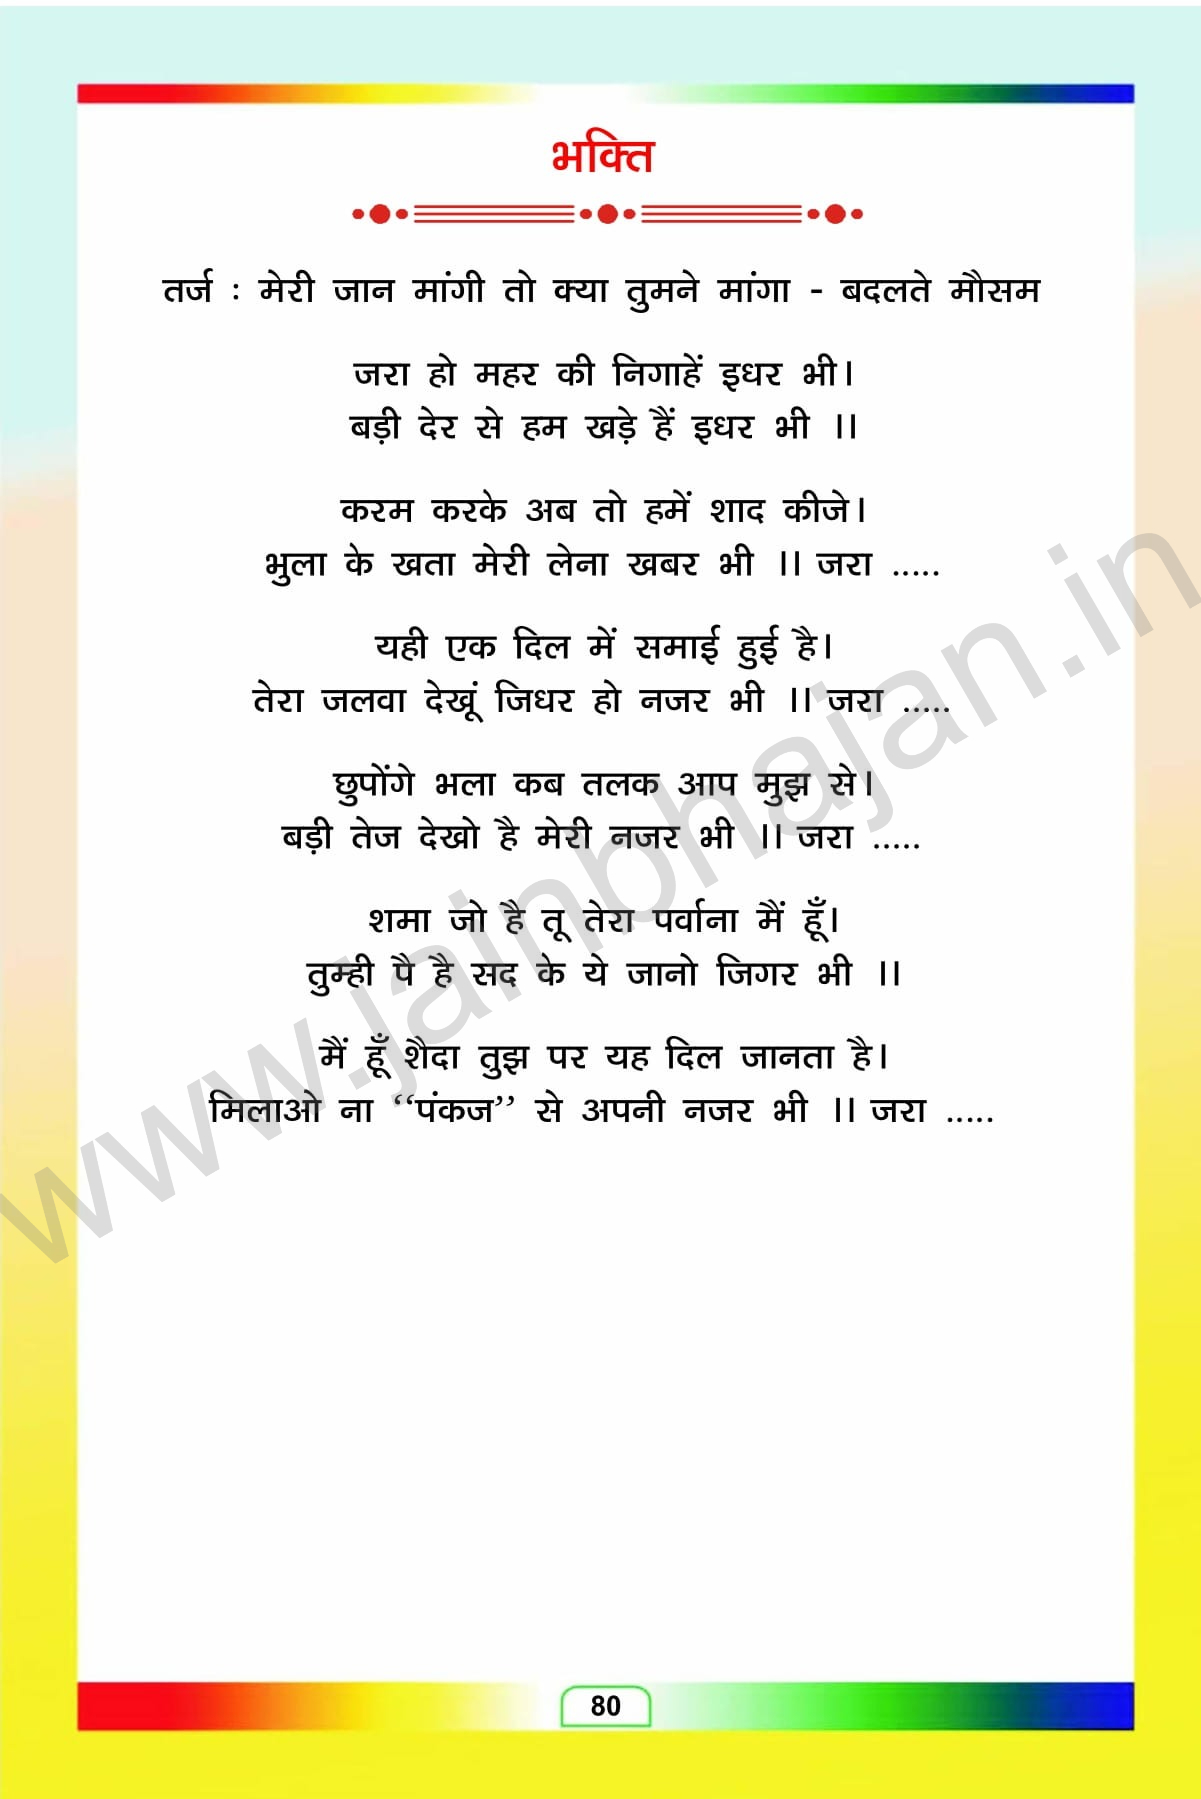 भक्ति
तर्ज : मेरी जान मांगी तो क्या तुमने मांगा - बदलते मौसम
जरा हो महर की निगाहें इधर भी।
बड़ी देर से हम खड़े हैं इधर भी ।।
करम करके अब तो हमें शाद कीजे।
भुला के खता मेरी लेना खबर भी ।। जरा .....
यही एक दिल में समाई हुई है।
तेरा जलवा देखूं जिधर हो नजर भी ।। जरा .....
छुपोंगे भला कब तलक आप मुझ से।
बड़ी तेज देखो है मेरी नजर भी ।। जरा .....
शमा जो है तू तेरा पर्वाना मैं हूँ।
तुम्ही पै है सद के ये जानो जिगर भी ।।
मैं हूँ शैदा तुझ पर यह दिल जानता है।
मिलाओ ना “पंकज” से अपनी नजर भी ।। जरा .....
www.jainbhajan.in
80